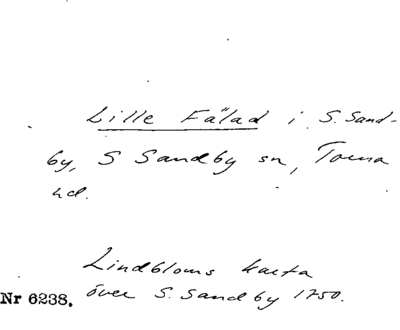 Lille Fälad i S. Sand-
by, S Sandby sn, Torna
hd.
Lindbloms karta
över S. Sandby 1750.
Nr 6238.